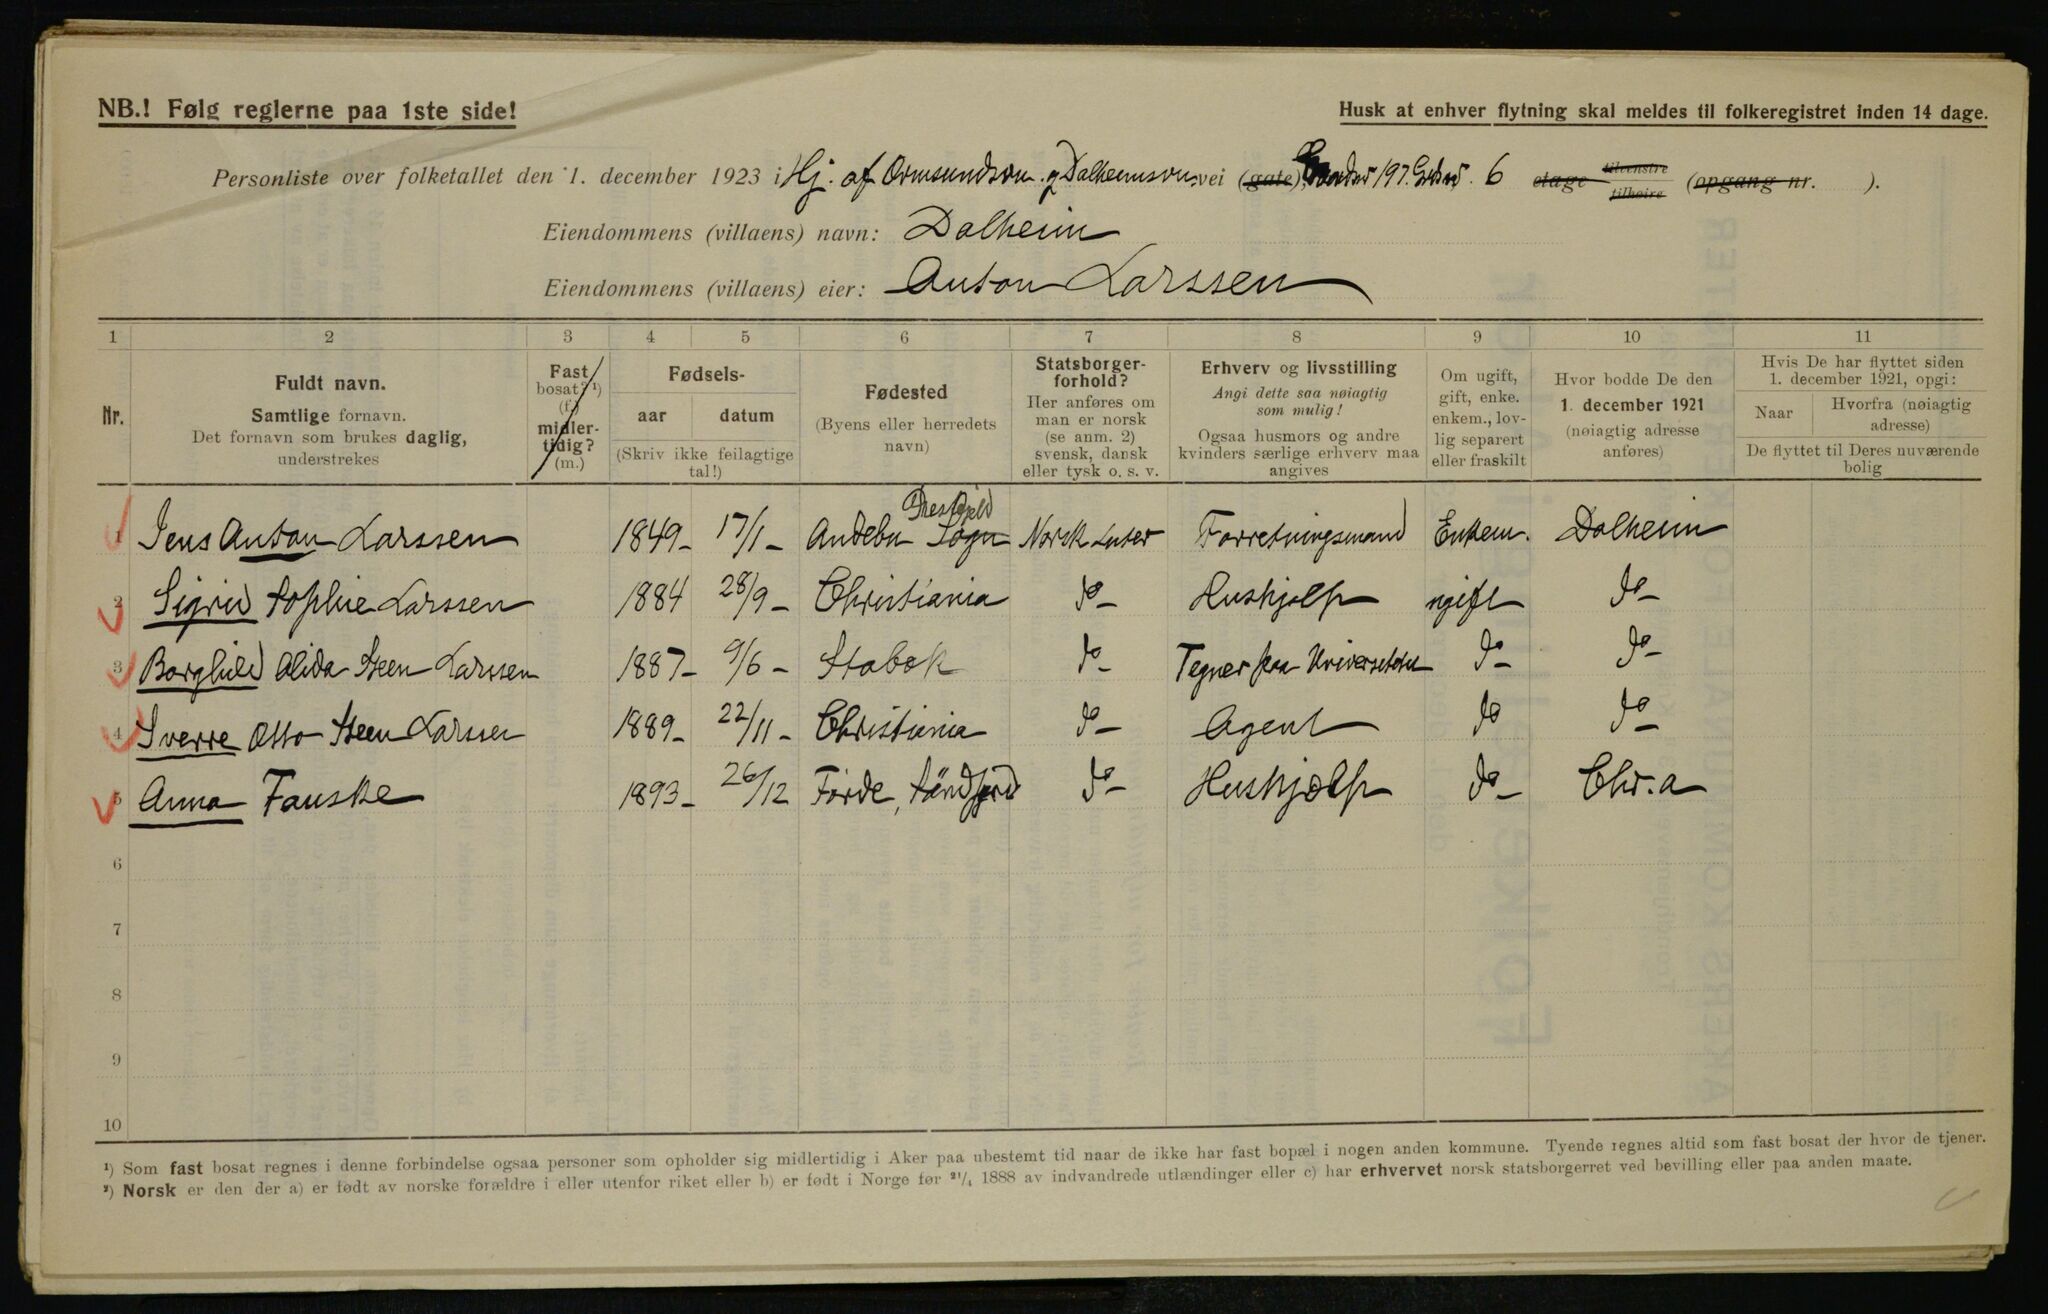 NB.! Følg reglerne paa 1ste side!
Husk at enhver flytning skal meldes til folkeregistret inden 14 dage.
Personliste over folketallet den 1. december 1923 i Hj. af Ormsundsvn. og Dalheimsvn. vei (gate), 197. 6 etage tilvenstre tilhøire (opgang nr. ).
Eiendommens (villaens) navn: Dalheim
Eiendommens (villaens) eier: Anton Larssen
1 2 3 4 5 6 7 8 9 10 11
Nr.
Fuldt navn.
Samtlige fornavn.
Det fornavn som brukes daglig,
understrekes
Fast
bosat? ¹)
(f.)
midler-
tidig?
(m.)
Fødsels-
aar datum
(Skriv ikke feilagtige
tal!)
Fødested
(Byens eller herredets
navn)
Statsborger-
forhold?
Her anføres om
man er norsk
(se anm. 2)
svensk, dansk
eller tysk o. s. v.
Erhverv og livsstilling
Angi dette saa nøiagtig
som mulig!
Ogsaa husmors og andre
kvinders særlige erhverv maa
angives
Om ugift,
gift, enke.
enkem., lov-
lig separert
eller fraskilt
Hvor bodde De den
1. december 1921
(nøiagtig adresse
anføres)
Hvis De har flyttet siden
1. december 1921, opgi:
Naar Hvorfra (nøiagtig
adresse)
De flyttet til Deres nuværende
bolig
Prestegjeld
1 Jens Anton Larssen 1849- 17/1- Andebu Sogn Norsk Forretningsmand Enkem. Dalheim
2 Sigrid Sophie Larssen 1884 28/9- Christiania do- Hushjælp ugift do-
3 Borghild Alida Steen Larssen 1887- 9/6- Stabæk do- Tegner paa Universitetet do- do-
4 Sverre Otto Steen Larssen 1889- 22/11- Christiania do- Agent do do-
5 Anna Fauske 1893- 26/12 Førde, Søndfjord do- Hushjælp do- Chr.a
6
7
8
9
10
¹) Som fast bosat regnes i denne forbindelse ogsaa personer som opholder sig midlertidig i Aker paa ubestemt tid naar de ikke har fast bopæl i nogen anden kommune. Tyende regnes altid som fast bosat der hvor de tjener.
²) Norsk er den der a) er født av norske forældre i eller utenfor riket eller b) er født i Norge før ²¹/₄ 1888 av indvandrede utlændinger eller c) har erhvervet norsk statsborgerret ved bevilling eller paa anden maate.